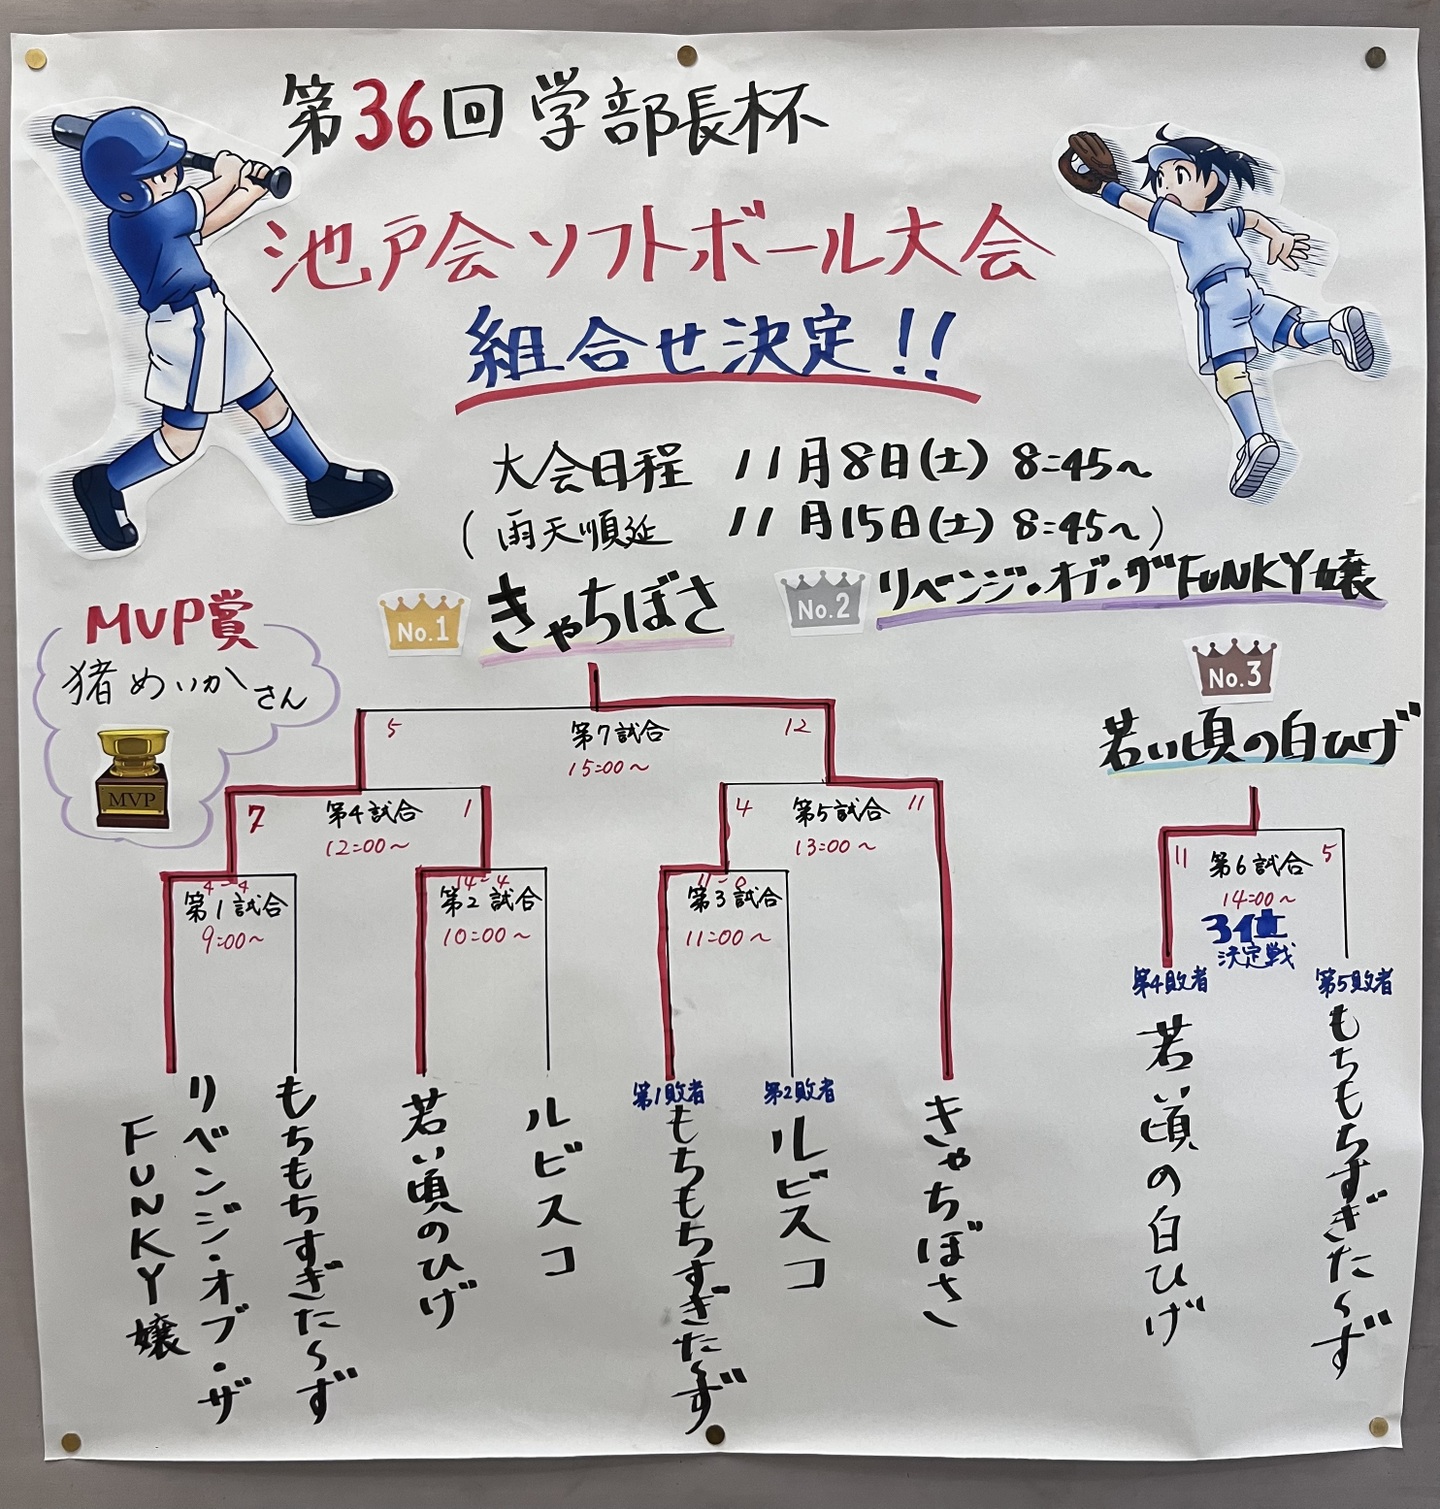 第36回 学部長杯
池戸会ソフトボール大会
組合せ決定!!
大会日程 11月8日(土) 8:45〜
(雨天順延 11月15日(土) 8:45〜)
No.1 きゃちぼさ
No.2 リベンジ・オブ・ザFUNKY嬢
No.3
若い頃の白ひげ
MVP賞
猪めいかさん
MVP
5 第7試合 12
15:00〜
7 第4試合 1
12:00〜
4 第5試合 11
13:00〜
4-4
第1試合
9:00〜
14-4
第2試合
10:00〜
11-0
第3試合
11:00〜
11 第6試合 5
14:00〜
3位
決定戦
リベンジ・オブ・ザ
FUNKY嬢
もちもちすぎた〜ず
若い頃のひげ
ルビスコ
第1敗者
もちもちすぎた〜ず
第2敗者
ルビスコ
きゃちぼさ
第4敗者
若い頃の白ひげ
第5敗者
もちもちすぎた〜ず